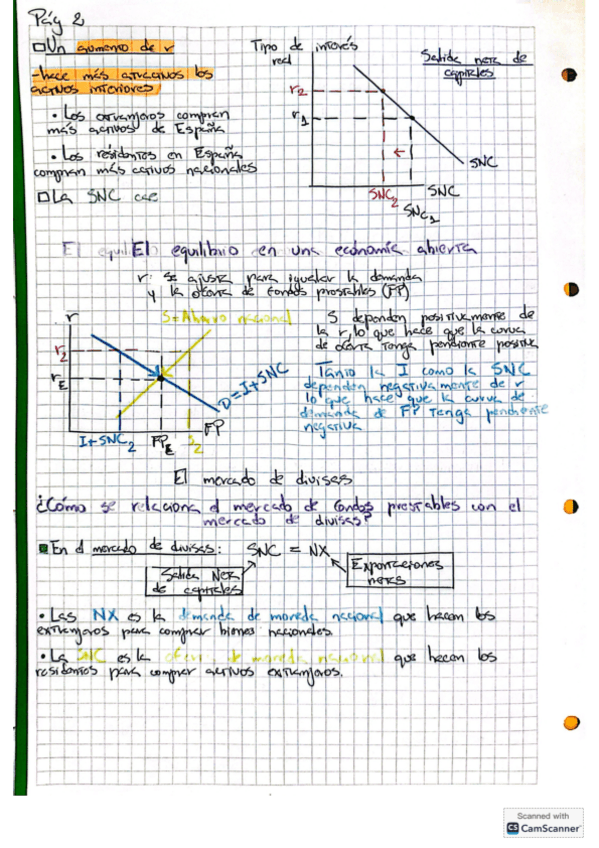 Pág 2
□Un aumento de r
-hace más atractivos los
activos interiores
• Los extranjeros compran
más activos de España
• Los residentes en España
compran más activos nacionales
□La SNC cae
Tipo de interés
real
Salida neta de
capitales
r2
r1
SNC
SNC2
SNC
SNC1
El equilibrio en una economía abierta
r: se ajusta para igualar la demanda
y la oferta de fondos prestables (FP)
r
S=Ahorro nacional
r2
rE
D=I+SNC
I+SNC2
FPE
S2
FP
S dependen positivamente de
la r, lo que hace que la curva
de oferta tenga pendiente positiva
Tanto la I como la SNC
dependen negativamente de r
lo que hace que la curva de
demanda de FP tenga pendiente
negativa
El mercado de divisas
¿Cómo se relaciona el mercado de fondos prestables con el
mercado de divisas?
En el mercado de divisas: SNC = NX
Salida Neta
de capitales
Exportaciones
netas
• Las NX es la demanda de moneda nacional que hacen los
extranjeros para comprar bienes nacionales.
• La SNC es la oferta de moneda nacional que hacen los
residentes para comprar activos extranjeros.
Scanned with
CS CamScanner